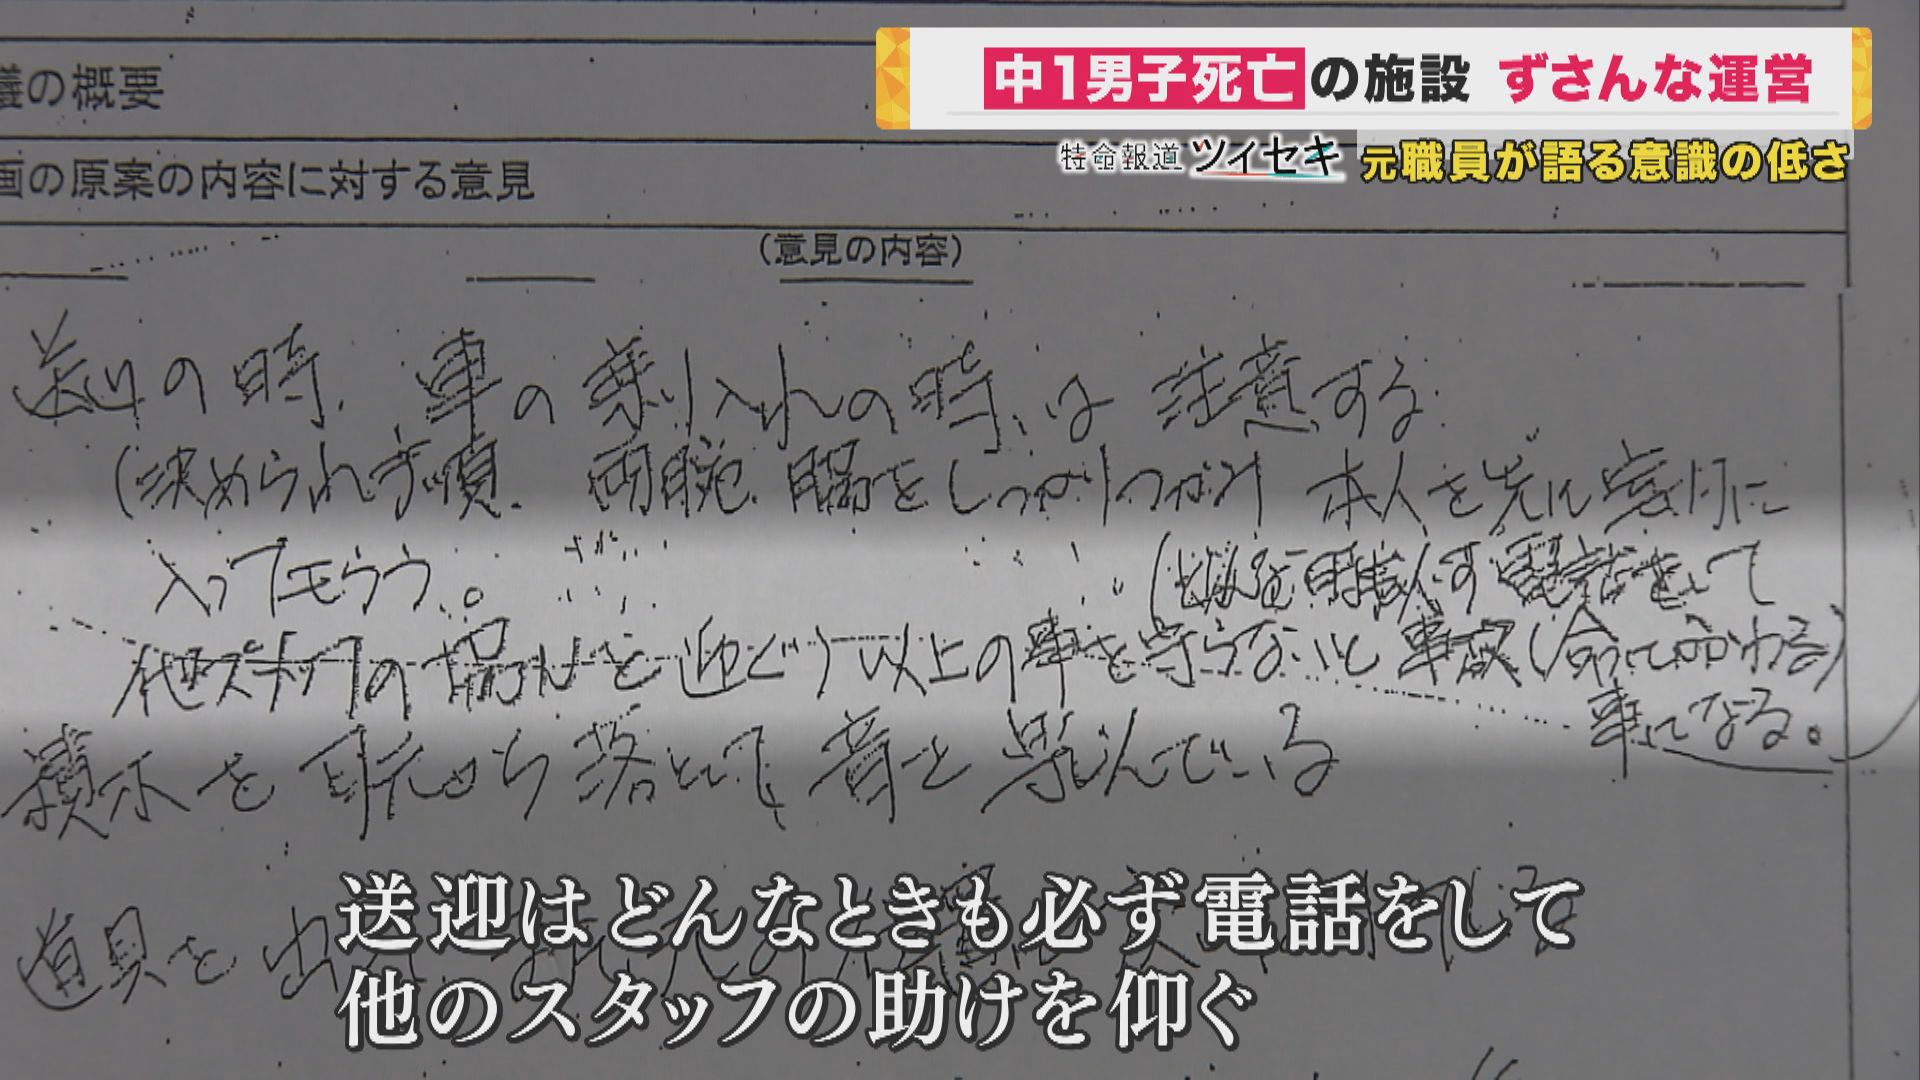 中1男子死亡の施設 ずさんな運営
特命報道 ツイセキ 元職員が語る意識の低さ
議の概要
画の原案の内容に対する意見
(意見の内容)
送りの時、車の乗り入れの時、は 注意する
(決められ手順、両腕、脇をしっかりつかみ 本人を先に室内に
入ってもらう。
必ず電話をして
他スタッフの協力を 以上の事を守らないと 事故(命にかかわる)
事になる。
積木を耳元から落として、音を楽しんでいる
道具を
送迎はどんなときも必ず電話をして
他のスタッフの助けを仰ぐ